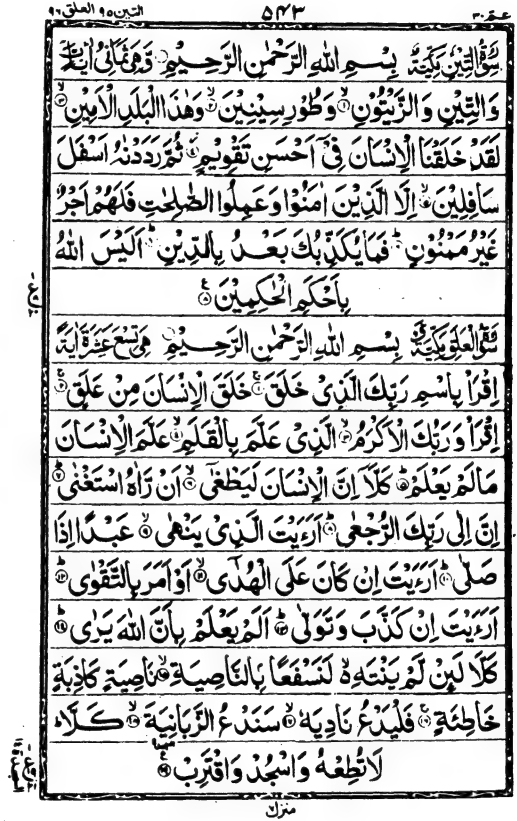 عمّ ٣٠ ٥٤٣ التين ٩٥ العلق ٩٦
سُوْرَةُ التِّيْنِ مَكِّيَّةٌ بِسْمِ اللهِ الرَّحْمٰنِ الرَّحِيْمِ وَّهِيَ ثَمَانِيْ اٰيَاتٍ
وَالتِّيْنِ وَالزَّيْتُوْنِ ۙ﴿١﴾ وَطُوْرِ سِيْنِيْنَ ۙ﴿٢﴾ وَهٰذَا الْبَلَدِ الْاَمِيْنِ ۙ﴿٣﴾
لَقَدْ خَلَقْنَا الْاِنْسَانَ فِيْۤ اَحْسَنِ تَقْوِيْمٍ ﴿٤﴾ ثُمَّ رَدَدْنٰهُ اَسْفَلَ
سَافِلِيْنَ ۙ﴿٥﴾ اِلَّا الَّذِيْنَ اٰمَنُوْا وَعَمِلُوا الصّٰلِحٰتِ فَلَهُمْ اَجْرٌ
غَيْرُ مَمْنُوْنٍ ؕ﴿٦﴾ فَمَا يُكَذِّبُكَ بَعْدُ بِالدِّيْنِ ؕ﴿٧﴾ اَلَيْسَ اللهُ
بِاَحْكَمِ الْحٰكِمِيْنَ ﴿٨﴾
سُوْرَةُ الْعَلَقِ مَكِّيَّةٌ بِسْمِ اللهِ الرَّحْمٰنِ الرَّحِيْمِ هِيَ تِسْعَ عَشَرَةَ اٰيَةً
اِقْرَاْ بِاسْمِ رَبِّكَ الَّذِيْ خَلَقَ ۚ﴿١﴾ خَلَقَ الْاِنْسَانَ مِنْ عَلَقٍ ۚ﴿٢﴾
اِقْرَاْ وَرَبُّكَ الْاَكْرَمُ ۙ﴿٣﴾ الَّذِيْ عَلَّمَ بِالْقَلَمِ ۙ﴿٤﴾ عَلَّمَ الْاِنْسَانَ
مَا لَمْ يَعْلَمْ ؕ﴿٥﴾ كَلَّاۤ اِنَّ الْاِنْسَانَ لَيَطْغٰۤى ۙ﴿٦﴾ اَنْ رَّاٰهُ اسْتَغْنٰى ؕ﴿٧﴾
اِنَّ اِلٰى رَبِّكَ الرُّجْعٰى ؕ﴿٨﴾ اَرَءَيْتَ الَّذِيْ يَنْهٰى ۙ﴿٩﴾ عَبْدًا اِذَا
صَلّٰى ؕ﴿١٠﴾ اَرَءَيْتَ اِنْ كَانَ عَلَى الْهُدٰۤى ۙ﴿١١﴾ اَوْ اَمَرَ بِالتَّقْوٰى ؕ﴿١٢﴾
اَرَءَيْتَ اِنْ كَذَّبَ وَتَوَلّٰى ؕ﴿١٣﴾ اَلَمْ يَعْلَمْ بِاَنَّ اللهَ يَرٰى ؕ﴿١٤﴾
كَلَّا لَئِنْ لَّمْ يَنْتَهِ ۙ لَنَسْفَعًا بِالنَّاصِيَةِ ۙ﴿١٥﴾ نَاصِيَةٍ كَاذِبَةٍ
خَاطِئَةٍ ۚ﴿١٦﴾ فَلْيَدْعُ نَادِيَهٗ ۙ﴿١٧﴾ سَنَدْعُ الزَّبَانِيَةَ ۙ﴿١٨﴾ كَلَّا ؕ
لَا تُطِعْهُ وَاسْجُدْ وَاقْتَرِبْ ﴿١٩﴾
منزل